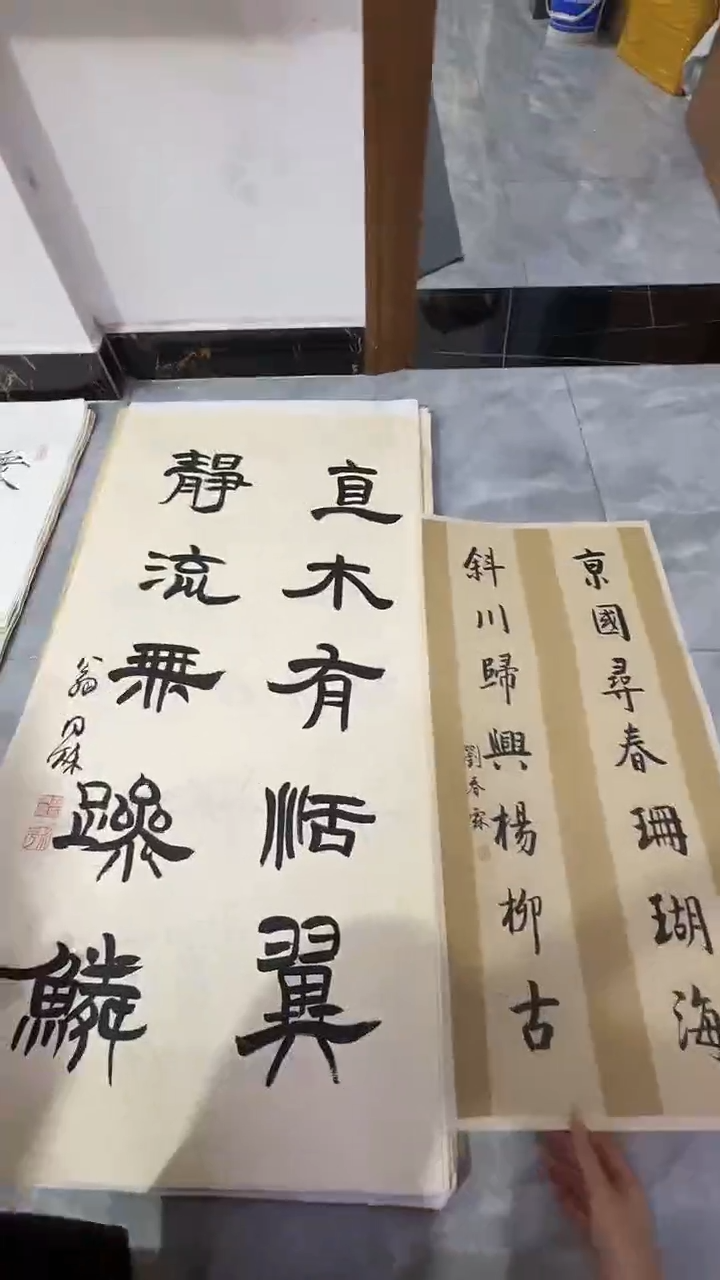 直木有恬翼
靜流無躁鱗
翁同龢
亰國尋春珊瑚海
斜川歸興楊柳古
劉春霖